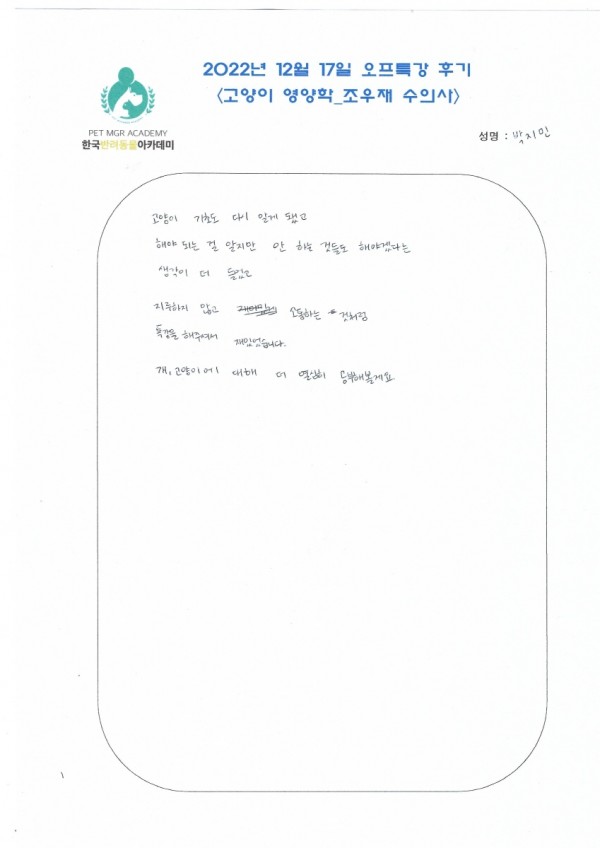 2022년 12월 17일 오프특강 후기
<고양이 영양학_조우재 수의사>
PET MGR ACADEMY
한국반려동물아카데미
성명 : 박지민
고양이 기초도 다시 알게 됐고
해야 되는 걸 알지만 안 하는 것들도 해야겠다는
생각이 더 들었고
지루하지 않고 소통하는 것처럼
특강을 해주셔서 재밌었습니다.
개, 고양이에 대해 더 열심히 공부해볼게요